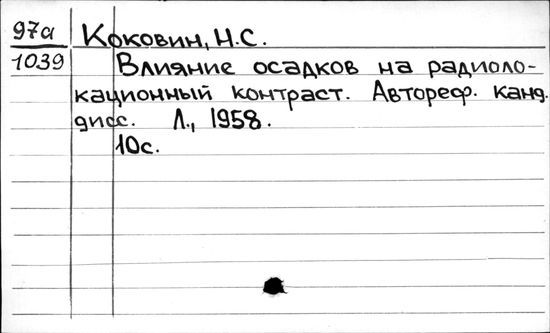 97а Коковин, Н.С.
1039 Влияние осадков на радиоло-
кационный контраст. Автореф. канд.
дисс. Л., 1958.
10с.